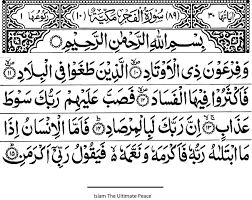 اٰیاتها ٣٠ (٨٩) سُوْرَةُ الْفَجْرِ مَكِّيَّةٌ (١٠) رکوعها ١
بِسْمِ اللّٰهِ الرَّحْمٰنِ الرَّحِيْمِ
وَفِرْعَوْنَ ذِی الْاَوْتَادِ ۝١٠ الَّذِيْنَ طَغَوْا فِی الْبِلَادِ ۝١١
فَاَكْثَرُوْا فِيْهَا الْفَسَادَ ۝١٢ فَصَبَّ عَلَيْهِمْ رَبُّكَ سَوْطَ
عَذَابٍ ۝١٣ اِنَّ رَبَّكَ لَبِالْمِرْصَادِ ۝١٤ فَاَمَّا الْاِنْسَانُ اِذَا
مَا ابْتَلٰىهُ رَبُّهٗ فَاَكْرَمَهٗ وَنَعَّمَهٗ فَيَقُوْلُ رَبِّیْۤ اَكْرَمَنِ ۝١٥
Islam The Ultimate Peace